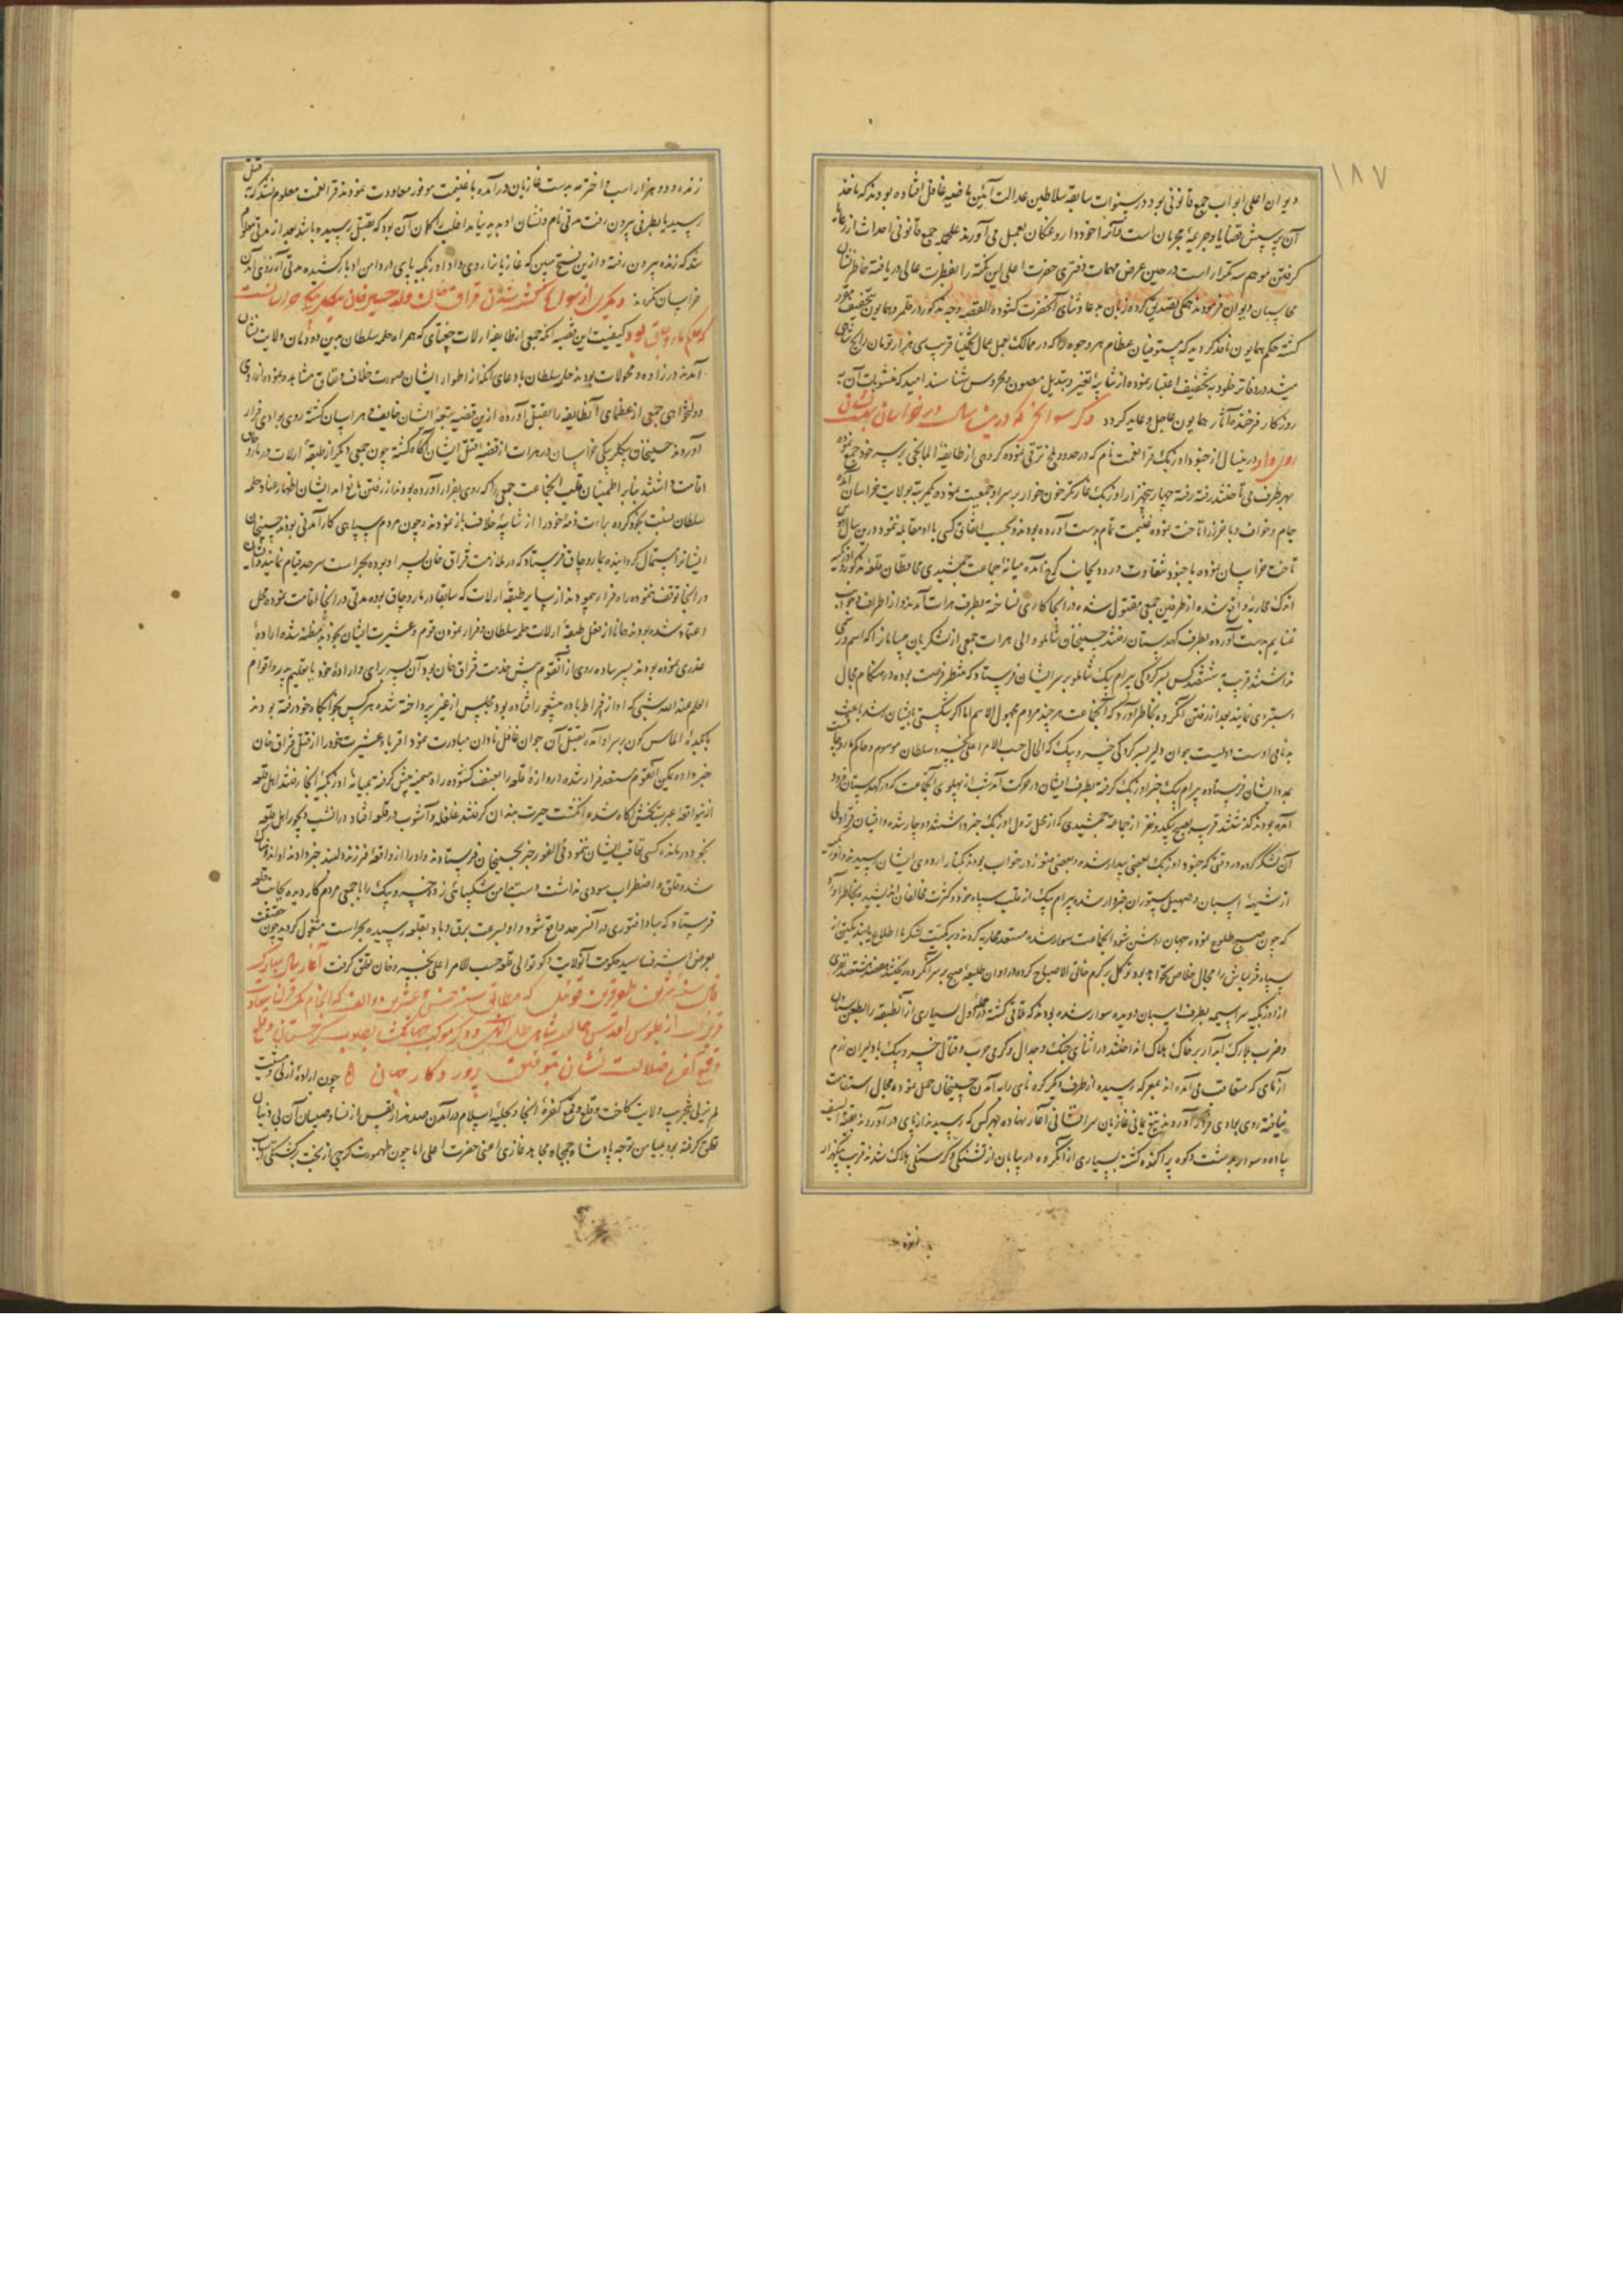 ۱۸۷
دیوان اعلی ابواب جمع قانونی بود در سنوات سابقه سلاطین عدالت آئین ماضیه غافل افتاده بودند که ماخذ
آن پرسش قضایا و جریمهٔ مجرمان است و آنرا خود داروغگان بعمل می آورند جمع قانونی احداث از رعایا
گرفتن موهم تکرار است در حین عرض مهمات دفتری حضرت اعلی این نکته را بفطرت عالی دریافته خاطرنشان
محاسبان دیوان فرمودند همگی تصدیق کرده زبان بدعا و ثنای آنحضرت گشودند القصه وجه مذکور در قلمرو همایون بتخفیف مقرر
گشته حکم همایون نافذ گردید که مستوفیان عظام هر وجوه را که در ممالک بعمل عمال تخمینا قریب سی هزار تومان رایج شاهی
میشد در دفاتر خلود به تخفیف اعتبار نموده از شایبهٔ تغییر و تبدیل مصون و محروس شناسند امید که مثوبات آن به
روزگار فرخنده آثار همایون عاجل و عاید گردد ذکر سوانحی که درین سال در خراسان
روی داد درینسال از جنود اوزبک قرا نعمت نام که در حدود بلخ ترقی نموده گروهی از طایفهٔ المانچی بر سر خود جمع نموده
بهر طرف می تاختند رفته رفته چهار پنجهزار اوزبک غارتگر خون خوار بر سر او جمعیت نموده یکمرتبه بولایت خراسان آمده
جام و خواف و باخرز را تاخت نموده غنیمت تمام بدست آورده بودند و بحسب اتفاق کسی با او مقابله ننمود درین سال
تاخت خراسان نموده با جنود شقاوت ورود بجانب کوچ آمده میانهٔ جماعت جمشیدی محافظان قلعه مذکور و اوزبکیه
اندک محاربهٔ واقع شده از طرفین جمعی مقتول شدند در آنجا کاری نساخته بطرف هرات آمدند و از اطراف و جوانب
غنایم بدست آورده بطرف کهدستان رفتند حسینخان شاملو والی هرات جمعی از لشکریان
نداشتند قریب ششصد کس بسرکردگی بیرام بیک شاملو بر سر ایشان فرستاد که منتظر فرصت بوده در هنگام مجال
دستبردی نمایند بعد از رفتن آن گروه بخاطر آورد که آنجماعت هر چند مردم مجهول الاسم اما اگر شکستی بایشان رسد باعث
بدنامی اوست جوان دلیر بسرکردگی خسرو بیک که الحال حسب الامر اعلی خسرو سلطان موسوم و حاکم ماروچاق
بمدد ایشان فرستاده بیرام بیک خبر اوزبک گرفته بطرف ایشان در حرکت آمد شب از پهلوی آنجماعت که در کهدستان فرود
آمده بودند گذشتند قریب بصبح یکدو نفر از جماعت جمشیدی که از محل نزول اوزبک خبر داشتند دوچار شده و افغان قراولی
آن لشکر کرده در وقتی که جنود اوزبک بعضی بیدار شده و بعضی هنوز در خواب بودند بکنار اردوی ایشان رسیدند
از شیههٔ اسبان و صهیل ستوران خبردار شده بیرام بیک از قلت سپاه خود و کثرت مخالفان اندیشیده بخاطر آورد
که چون صبح طلوع نموده جهان روشن شود آنجماعت سوار شده مستعد محاربه گردند و بر کمیت لشکر ما اطلاع یابند یکتن از
سپاه قزلباش را مجال خلاصی نخواهد بود توکل بر کرم خالق الاصباح کرده در اوان طلیعهٔ صبح بر سر آن گروه ریختند
از اوزبکیه سراسیمه بطرف اسبان دویده سوار شده بودند که تلاقی گشته در حمله اول بسیاری از آنطبقه را بطعن سنان
و ضرب بلارک آبدار بر خاک هلاک انداختند در اثنای جنگ و جدال و گرمی حرب و قتال خسرو بیک با دلیران رزم
آزمای که متعاقب می آمدند بمعرکه رسیده از طرف دیگر کره نای زده آمدن حسینخان حمل نموده مجال استقامت
نیافته روی بوادی فرار آوردند تیغ یمانی غازیان سرافشانی آغاز نهاده بهر کس که رسیدند از پای در آوردند بقیة السیف
پیاده و سوار به دشت و کوه پراکنده گشته بسیاری از آن گروه در بیابان از تشنگی و گرسنگی هلاک شدند قریب پنجهزار
زنده و دو هزار اسب و اختر بدست غازیان درآمده با غنیمت موفور معاودت نمودند قرا نعمت معلوم نشد که بقتل
رسید یا بطرفی بیرون رفت مدتی نام و نشان او پدید نیامد اغلب را گمان آن بود که بقتل رسیده باشد بعد از مدتی معلوم
شد که زنده بیرون رفته و ازین فتح مبین که غازیانرا روی داد اوزبکیه پای در دامن ادبار کشیده مدتی آرزوی آمدن
خراسان نکردند دیگری از سوانح کشته شدن قزاق خان ولد حسین خان بیگلربیگی خراسانست
که حاکم ماروچاق بود کیفیت این قضیه آنکه جمعی از طایفهٔ ارلات جغتای که همراه حلمه سلطان بدین دودمان ولایت نشان
آمدند در زاده و محولات بودند حلمه سلطان بادعای آنکه از اطوار ایشان صورت خلاف و نفاق مشاهده نموده از روی
دولتخواهی جمعی از عظمای آنطایفه را بقتل آورده ازین قضیه بقیهٔ ایشان خایف و هراسان گشته روی بوادی فرار
آوردند حسینخان بیگلربیگی خراسان در هرات از قضیه قتل ایشان آگاه گشته چون جمعی دیگر از طبقهٔ ارلات در ماروچاق
اقامت داشتند بنابر اطمینان قلب آنجماعت جمعی را که روی بفرار آورده بودند از رفتن مانع آمد ایشان اظهار عناد حلمه
سلطان نسبت بخود کرده براءت ذمهٔ خود را از شایبهٔ خلاف باز نمودند و چون مردم سپاهی کارآمدنی بودند حسینخان
ایشانرا مستمال گردانیده بماروچاق فرستاد که در ملازمت قزاق خان پسر او بوده بحراست سرحد قیام نمایند
در آنجا توقف ننموده راه فرار پیمودند از سایر طبقهٔ ارلات که سابقا در ماروچاق بوده مدتی در آنجا اقامت نموده محل
اعتماد شده بودند همانا از فعل طبقهٔ ارلات حلمه سلطان و فرار نمودن قوم و عشیرت ایشان بخود مظنه شده ارادهٔ
غدری نموده بودند پسر ساده روی از آنقوم پیش خدمت قزاق خان بود آن پسر برای و ارادهٔ خود یا بتعلیم پدر و اقوام
العلم عند الله شبی که او از افراط باده بیشعور افتاده بود و مجلس از غیر پرداخته شده هر کس بخوابگاه خود رفته بودند
الماس گون بر سر او آمده بقتل آن جوان غافل نادان مبادرت نمود و اقربا و عشیرت خود را از قتل قزاق خان
خبر داده یکمن آنقوم مستعد فرار شده دروازهٔ قلعه را بعنف گشوده راه میمنه پیش گرفته بمیانهٔ اوزبکیهٔ آنجا رفتند اهل قلعه
ازین واقعهٔ عبرت بخش آگاه شده انگشت حیرت بدندان گرفتند غلغله و آشوب در قلعه افتاد در آنشب دیجور اهل قلعه
بخود درمانده کسی تعاقب ایشان ننمود فی الفور خبر بحسینخان فرستادند و او را از واقعهٔ فرزند دلبند خبر دادند
شده قلق و اضطراب سودی نداشت دست بدامن شکیبائی زده خسرو بیک را با جمعی مردم کاردیده بجانب قلعه
فرستاد که مبادا فتوری در آن سرحد واقع شود و او بسرعت برق و باد بقلعه رسیده بحراست مشغول گردید چون حقیقت
بعرض اشرف رسید حکومت آنولایت و کوتوالی قلعه حسب الامر اعلی بخسرو خان تعلق گرفت آغاز سال مبارک
فال سنهٔ که مطابق سنه خمس و عشرین و الف که سال قران سعادت
قرین از جلوس اقدس همایون شاهی ظل اللهی و ذکر موکب جهانگشا بصوب گرجستان و قلع
و قمع کفرهٔ ضلالت نشان بتوفیق پروردگار جهان چون ارادهٔ ازلی و مشیت
لم یزلی بتخریب ولایت کاخت و قلع و قمع کفرهٔ آنجا و بحلیهٔ اسلام درآمدن صد هزار نفس از نساء و صبیان آن بی دینان
تعلق گرفته بود بمیامن توجه پادشاه جمجاه مجاهد غازی اعنی حضرت اعلی اما چون طهمورث گرجی از بخت برگشتگی